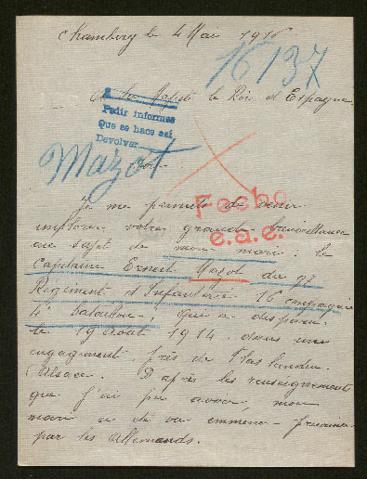 Chambéry le 4 Mai 1916
16137
A Sa Majesté le Roi d'Espagne
Pedir informes
Que se hace así
Devolver
Mazot
Fecho
e.a.e.
Je me permets de venir
implorer votre grande bienveillance
au sujet de mon mari : le
Capitaine Ernest Mazot du 97
Régiment d'Infanterie 16 compagnie
4e bataillon, qui a disparu
le 19 Août 1914 dans un
engagement près de
(Alsace. D'après les renseignements
que j'ai pu avoir, mon
mari a été vu emmené prisonnier
par les Allemands.